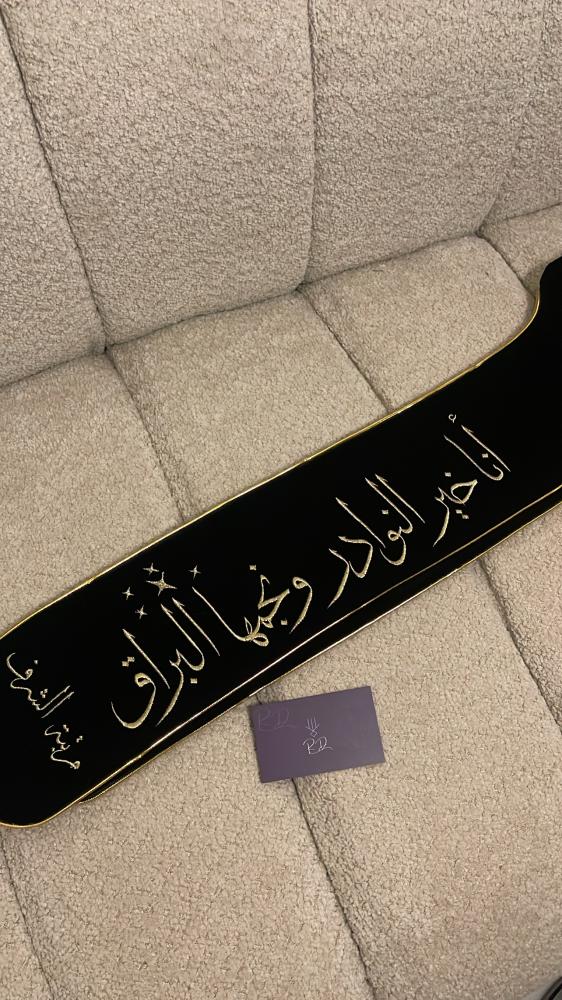 أنا خير النوادر ونجمها البراق
مرتبة الشرف
RD
RD